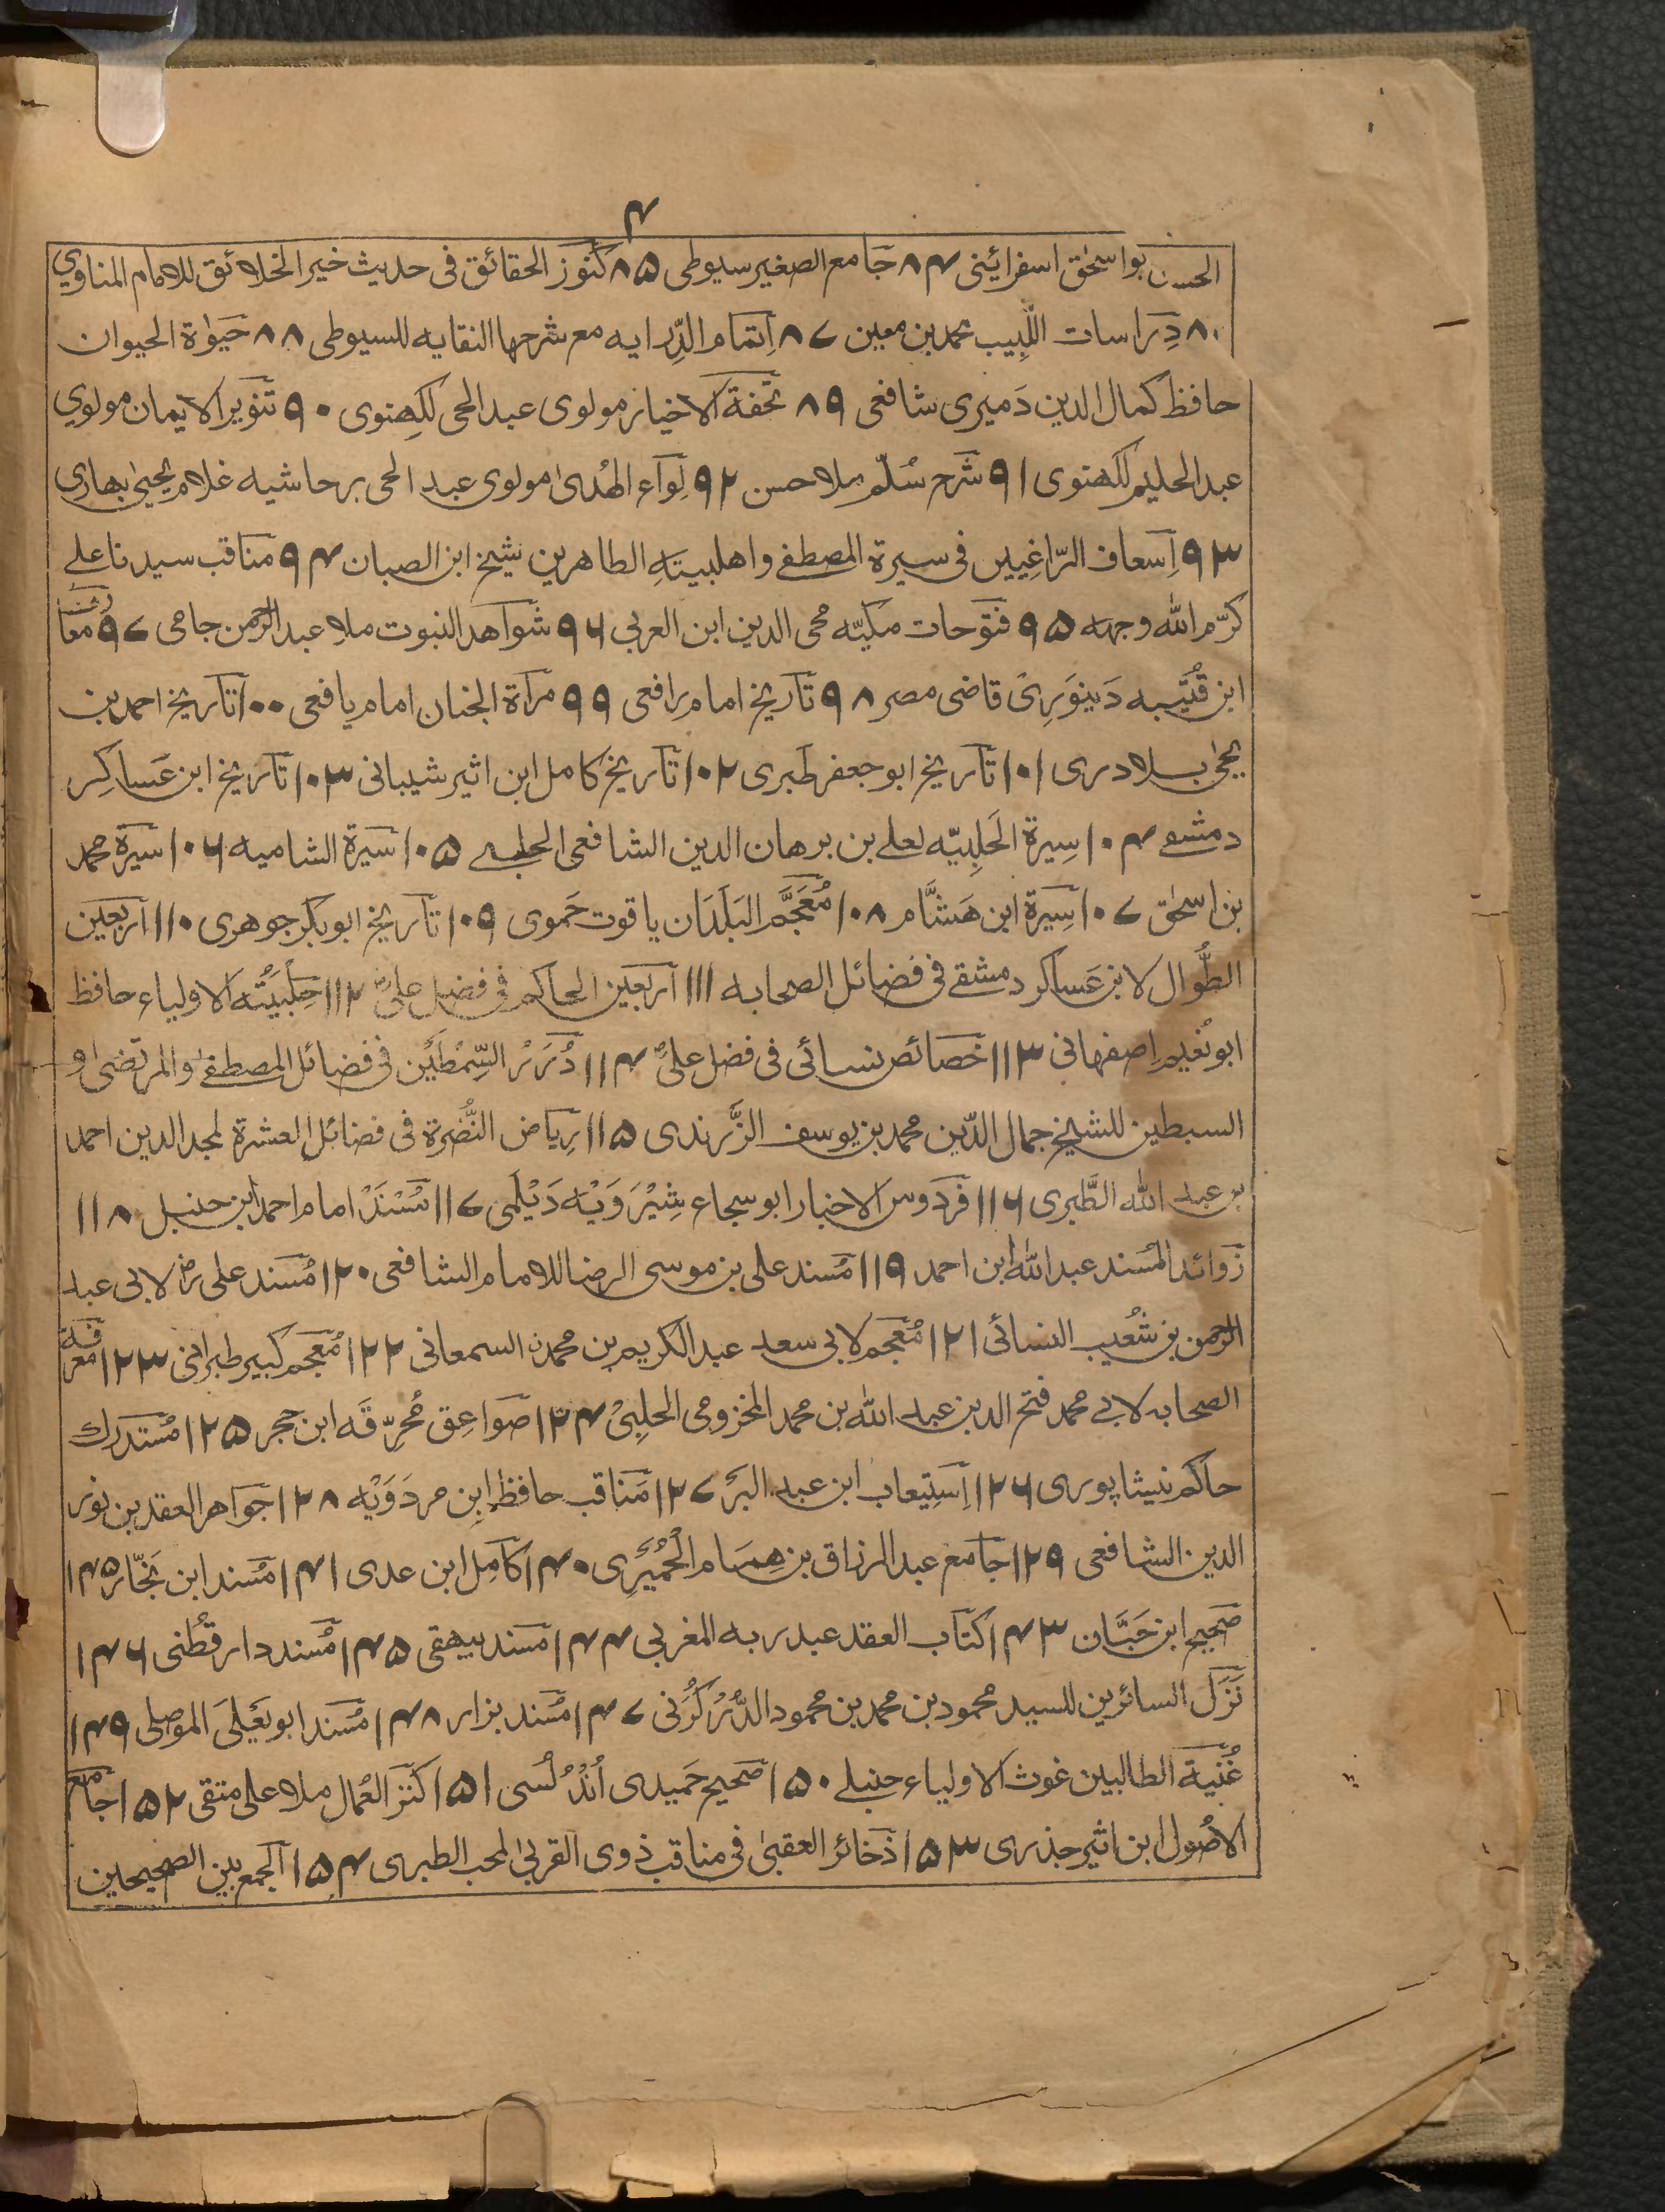 ۴
الحسن بواسحٰق اسفرائینی ۸۴ جامع الصغیر سیوطی ۸۵ کنوز الحقائق فی حدیث خیر الخلائق للامام المناوی
دِراسات اللّبِیب محمد بن معین ۸۷ اِتمام الدِّرایه مع شرحها النقایه للسیوطی ۸۸ حیٰوة الحیوان
حافظ کمال الدین دَمیری شافعی ۸۹ تحفة الاخیار مولوی عبد الحی لکِھنوی ۹۰ تنویر الایمان مولوی
عبد الحلیم لکھنوی ۹۱ شرح سُلّم ملا حسن ۹۲ لِوآء الهُدیٰ مولوی عبد الحی بر حاشیه غلام یحییٰ بهاری
۹۳ اِسعاف الرّاغِبین فی سیرة المصطفے و اهلبیتهِ الطاهرین شیخ ابن الصبان ۹۴ مناقب سیدنا علے
کرّم الله وجهه ۹۵ فتوحات مکیّه محی الدین ابن العربی ۹۶ شواهد النبوت ملا عبد الرحمن جامی ۹۷ معا
ابن قُتَیبه دَینوَرِی قاضی مصر ۹۸ تاریخ امام رافعی ۹۹ مرآة الجنان امام یافعی ۱۰۰ تاریخ احمد بن
یحیٰ بلادری ۱۰۱ تاریخ ابو جعفر طبری ۱۰۲ تاریخ کامل ابن اثیر شیبانی ۱۰۳ تاریخ ابن عَساکِر
دمشقے ۱۰۴ سِیرة الحَلبِیّه لعلے بن برهان الدین الشافعی الحلبے ۱۰۵ سیرة الشامیه ۱۰۶ سیرة محمد
بن اسحٰق ۱۰۷ سِیرة ابن هَشَّام ۱۰۸ مُعَجَّم البَلَدَان یاقوت حَموی ۱۰۹ تاریخ ابوبکر جوهری ۱۱۰ اربعین
الطُّوال لابن عَساکر دمشقے فی فضائل الصحابه ۱۱۱ اربعین الحاکم فی فضل علیؑ ۱۱۲ حِلْیَتُه الاولیاء حافظ
ابو نُعَیم اِصفهانی ۱۱۳ خصائص نسائی فی فضل علیؑ ۱۱۴ دُرَرُ السِّمْطَین فی فضائل المصطفےٰ والمرتضیٰ و
السبطین للشیخ جمال الدّین محمد بن یوسف الزَّرندی ۱۱۵ رِیاض النَّضِرة فی فضائل العشرة لمجد الدین احمد
بن عبد الله الطَّبری ۱۱۶ فردوس الاخبار ابو سجاع شِیْرَوَیْه دَیْلَمی ۱۱۷ مُسْنَدْ امام احمد ابن حنبل ۱۱۸
زوائد المُسند عبد الله ابن احمد ۱۱۹ مُسند علی بن موسی الرضا للامام الشافعی ۱۲۰ مُسند علی رض لابی عبد
الرحمن بن شُعیب النسائی ۱۲۱ مُعجم لابی سعد عبد الکریم بن محمدن السمعانی ۱۲۲ مُعجم کبیر طبرانی ۱۲۳ معرفة
الصحابه لابے محمد فتح الدین عبد الله بن محمد المخزومی الحلبِیْ ۱۲۴ صواعِق مُحرِّقَه ابن حجر ۱۲۵ مُستدرك
حاکم نیشاپوری ۱۲۶ اِستِیعاب ابن عبد البر ۱۲۷ مَناقب حافظ اِبن مردَوَیْه ۱۲۸ جواهر العقد بن نور
الدین الشافعی ۱۲۹ جامع عبد الرزاق بن همّام الحُمَیَرِی ۱۴۰ کامِل ابن عدی ۱۴۱ مُسند ابن نجّار ۱۴۵
صَحیح ابن حَبَّان ۱۴۳ کتاب العقد عبد ربه المغربی ۱۴۴ مُسند بیهقی ۱۴۵ مُسند دارقُطنی ۱۴۶
نَزَل السائرین للسید محمود بن محمد بن محمود الدُّرُرْکُزَنی ۱۴۷ مُسند بزار ۱۴۸ مُسند ابو یَعْلیَ الموصلی ۱۴۹
غُنیة الطالبین غوث الاولیاء حنبلے ۱۵۰ صحیح حَمیدی اُنْدُلُسی ۱۵۱ کنز العُمال ملا علی متقی ۱۵۲ جامع
الاصُول ابن اثیر جذری ۱۵۳ ذخائر العقبیٰ فی مناقب ذوی القربیٰ لمحب الطبری ۱۵۴ الجمع بین الصحیحین